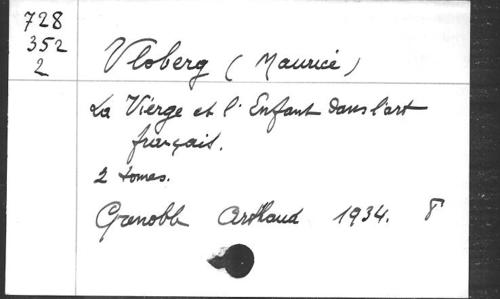 728
352
2
Vloberg (Maurice)
La Vierge et l'Enfant dans l'art
français.
2 tomes.
Grenoble Arthaud 1934. 8